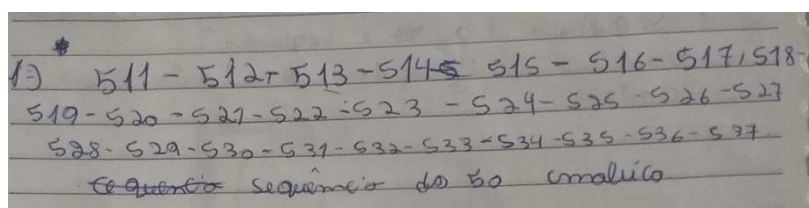 1=) 511 - 512 - 513 - 514 - 515 - 516 - 517, 518 -
519 - 520 - 521 - 522 - 523 - 524 - 525 - 526 - 527
528 - 529 - 530 - 531 - 532 - 533 - 534 - 535 - 536 - 537
sequência do 50